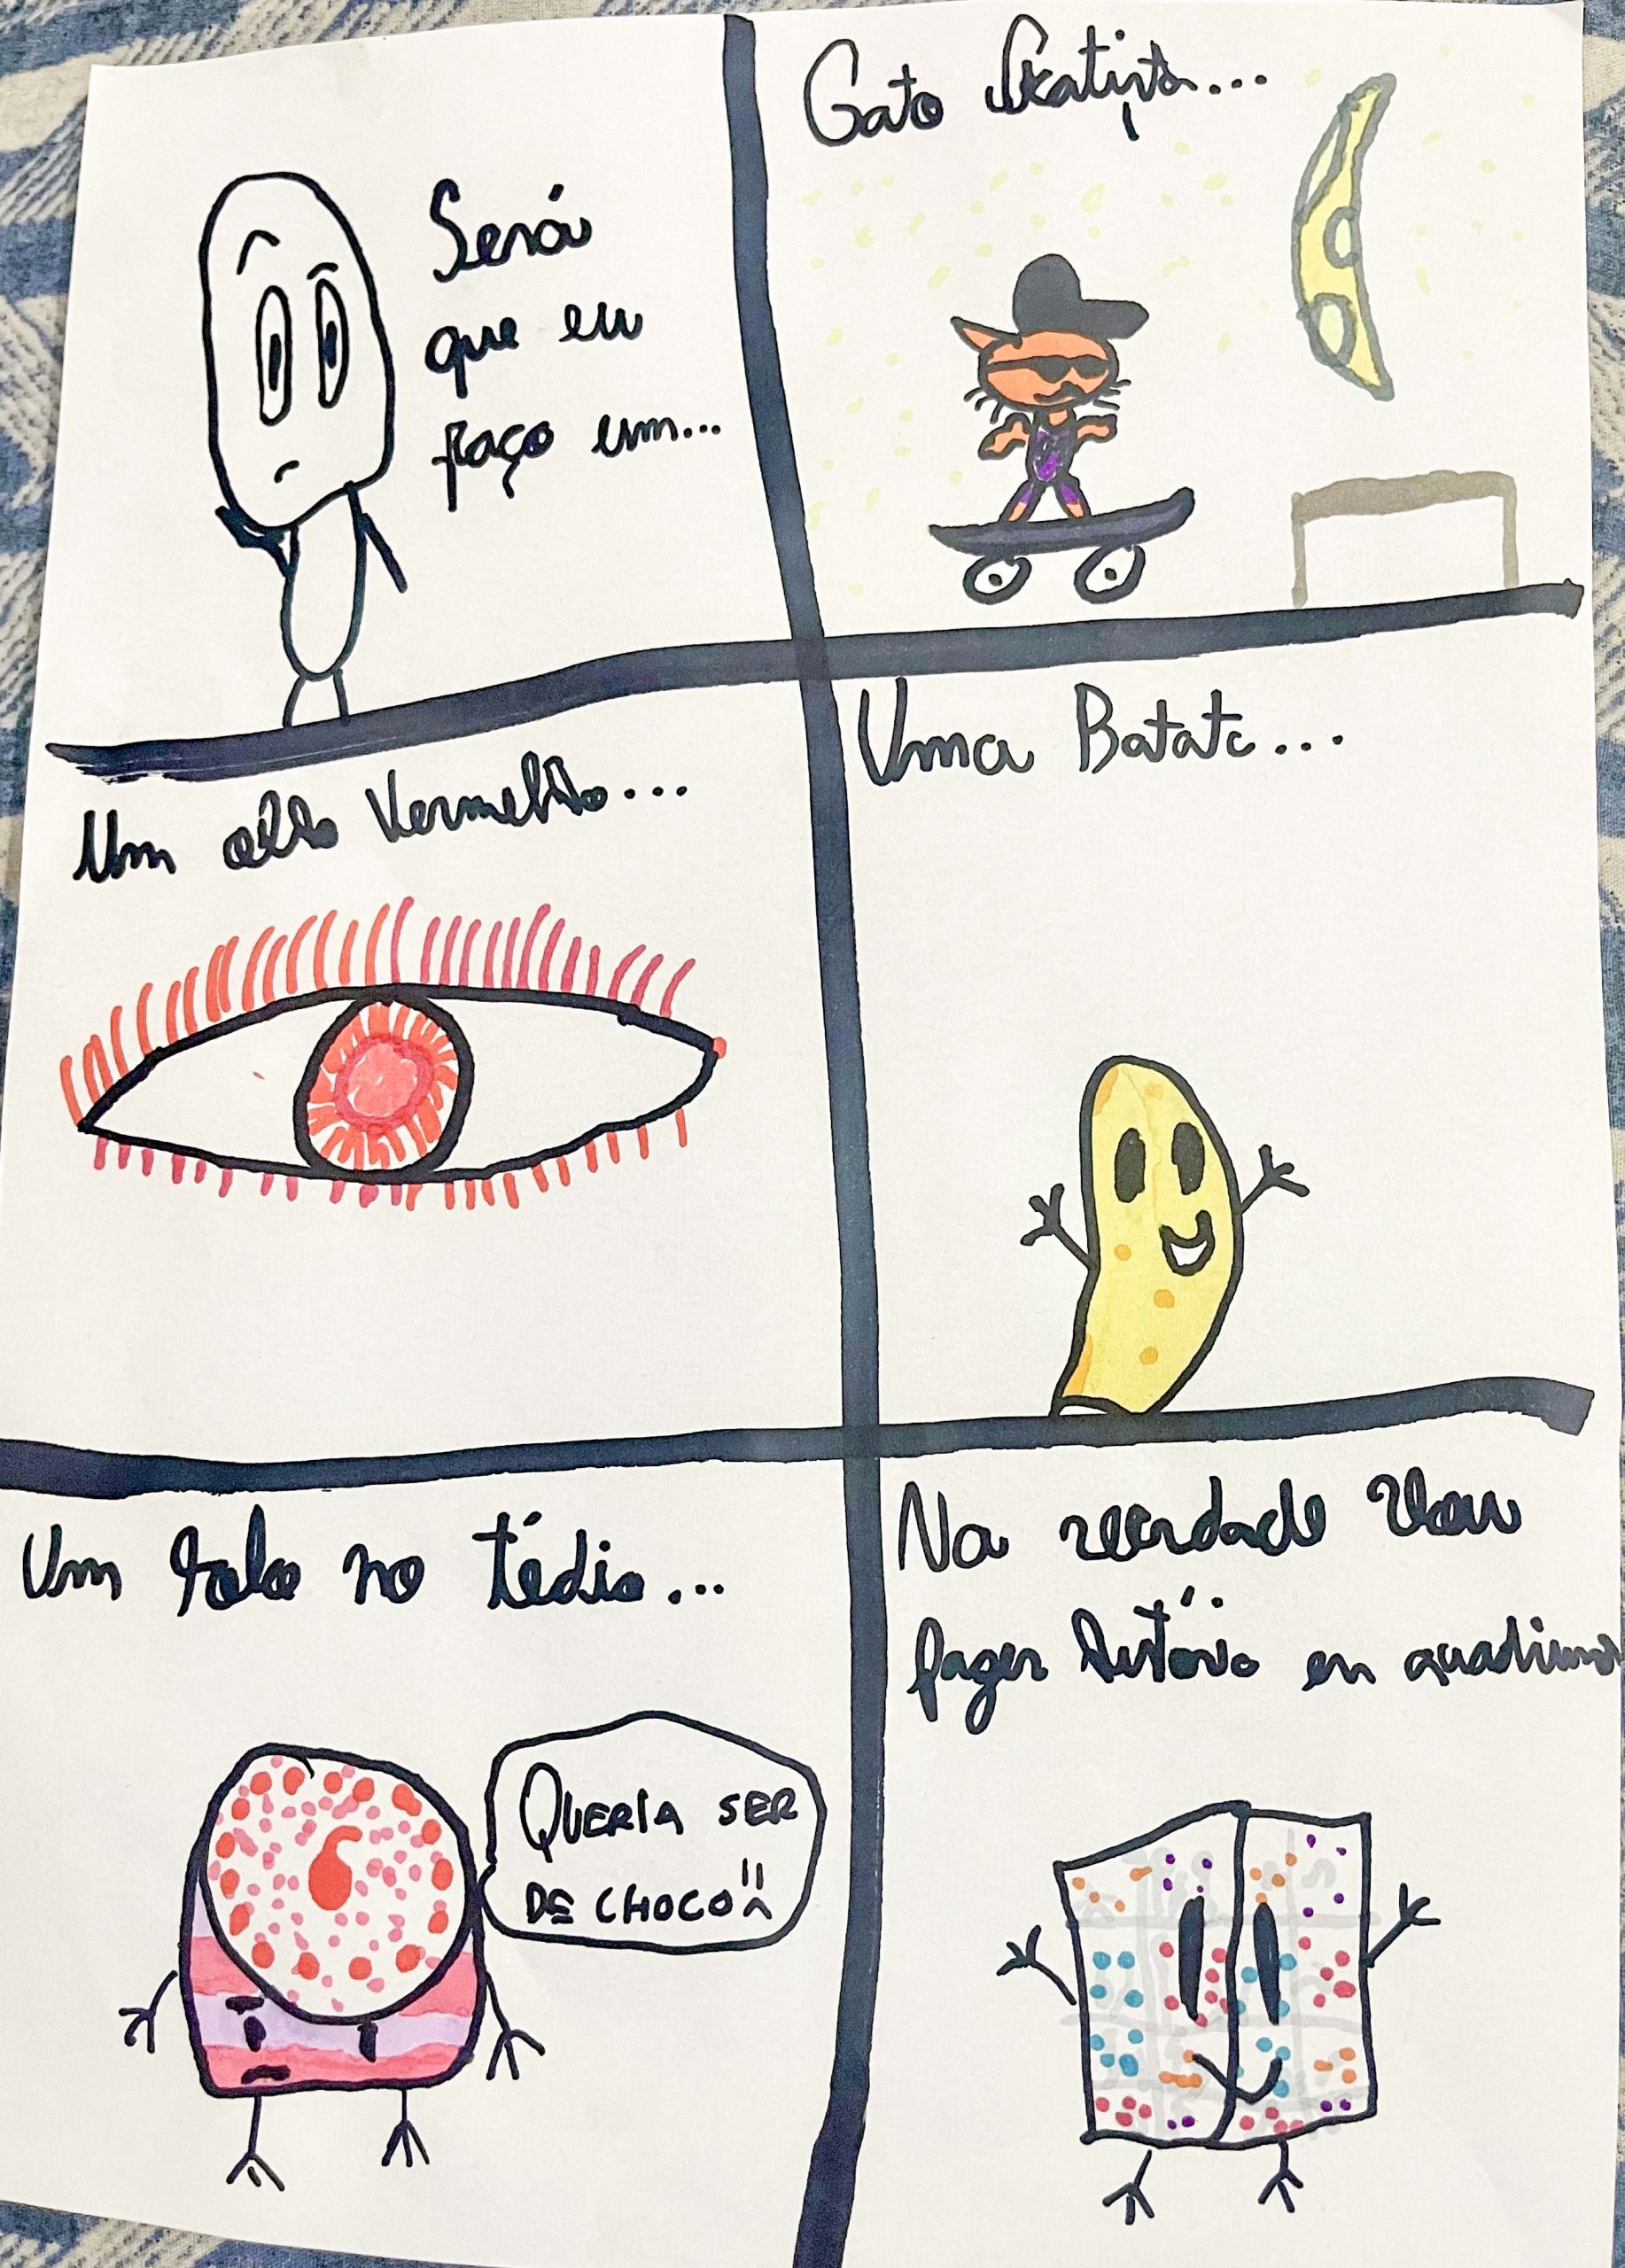 Será
que eu
faço um...
Gato Skatista...
Um olho Vermelho...
Uma Batata...
Um bolo no tédio...
QUERIA SER
DE CHOCO
Na verdade vou
fazer história em quadrinhos